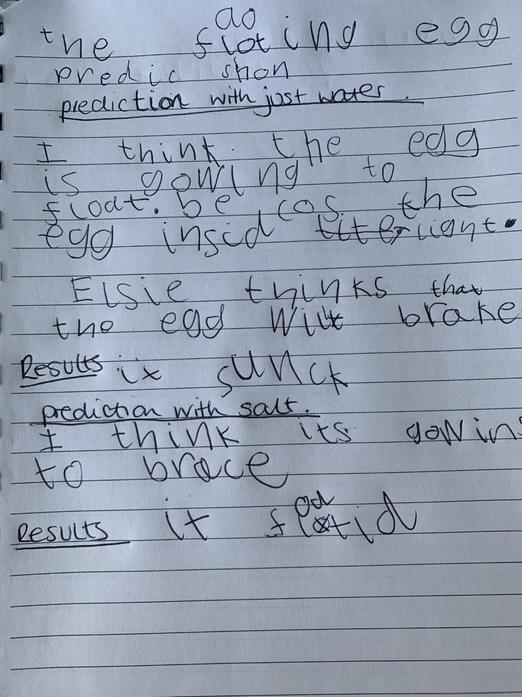 ao
the floting egg
predic shon
prediction with just water.
I think. the egg
is gowing to
float. be cos the
egg insid light.
Elsie thinks that
the egg will brake
Results it sunck
prediction with salt.
I think its gowing
to brace
Results it floatid